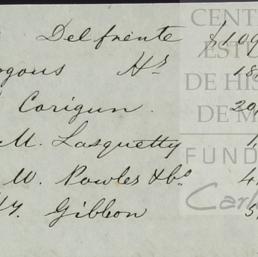 Delfrente $109
H.s 18
Corigun. 20
M. Lasquetty 1
W. Powles & Co 4
Gibbon 5
CENT
EST
DE HIS
DE M
FUND
Car